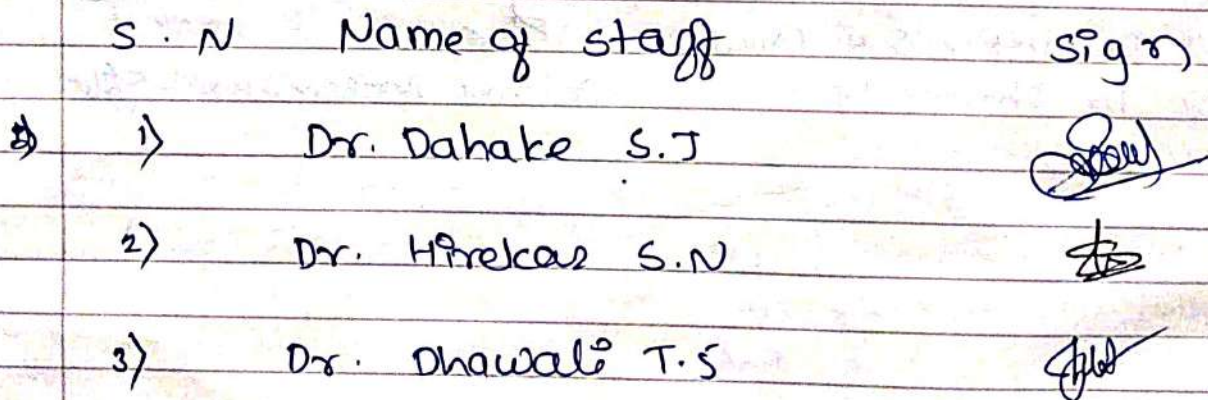 S.N Name of staff sign
1) Dr. Dahake S.J
2) Dr. Hirekar S.N
3) Dr. Dhawali T.S